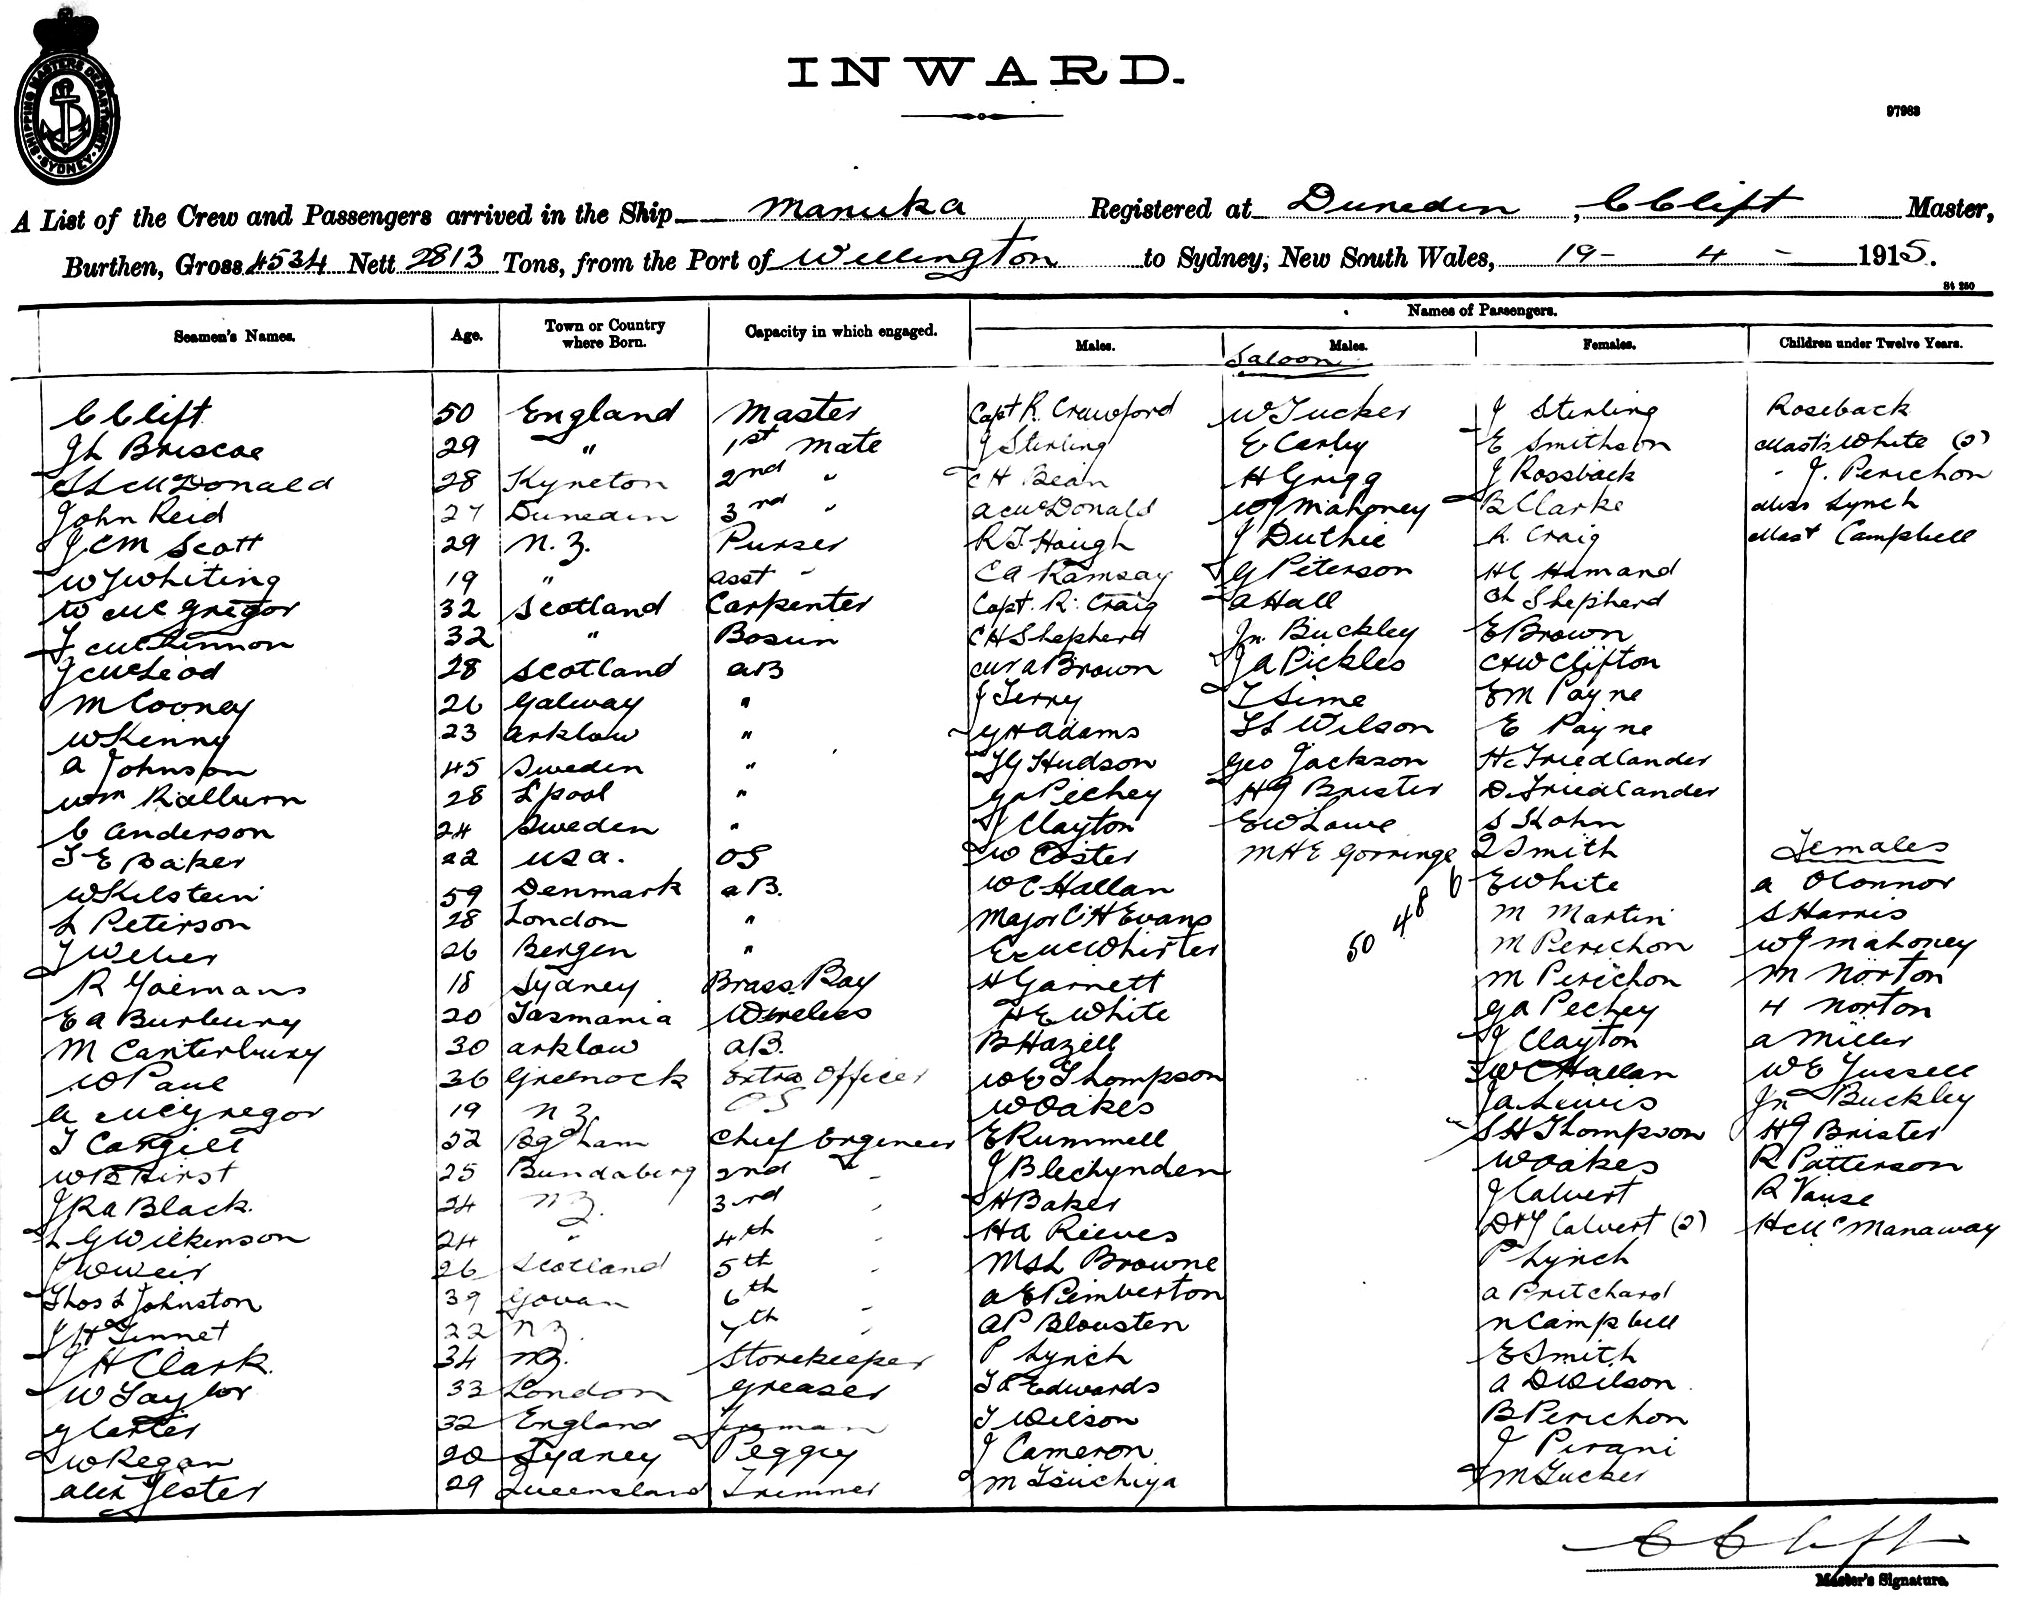 SHIPPING MASTERS DEPARTMENT · SYDNEY ·
INWARD.
97983
A List of the Crew and Passengers arrived in the Ship Manuka Registered at Dunedin, C Clift Master,
Burthen, Gross 4534 Nett 2813 Tons, from the Port of Wellington to Sydney, New South Wales, 19 - 4 - 1915.
84 250
Seamen's Names. Age. Town or Country where Born. Capacity in which engaged. Names of Passengers.
Males. Males. Females. Children under Twelve Years.
Saloon
C Clift 50 England Master Capt R. Crawford W Tucker J Sterling Roseback
JL Briscoe 29 " 1st Mate J Sterling E Carby E Smithson Mast's White (2)
McDonald 28 Kyneton 2nd " C H Bean H Grigg J Rossback " J. Perichon
John Reid 27 Dunedin 3rd " A McDonald WJ Mahoney B Clarke Miss Lynch
JCM Scott 29 N.Z. Purser R.T. Hough J Duthie R. Craig Mast Campbell
WJ Whiting 19 " asst " C A Ramsay G Peterson HC Hamand
W McGregor 32 Scotland Carpenter Capt. R. Craig A Hall Ch Shepherd
McKinnon 32 " Bosun CH Shepherd Jn. Buckley E Brown
J McLeod 28 Scotland AB A Brown JA Pickles C Clifton
M Cooney 26 Galway " J Terry T Sime EM Payne
W Kenny 23 Arklow " G H Adams Wilson E Payne
A Johnson 45 Sweden " Hudson Geo Jackson H Friedlander
Wm Kilburn 28 L'pool " Ga Pechey HG Brister D. Friedlander
C Anderson 24 Sweden " J Clayton EW Lowe S Kohn
T E Baker 22 USA. OS W Coster MHE Gorringe Smith Females
W Kilstein 59 Denmark AB. WC Hallan E White A OConnor
L Peterson 28 London " Major C H Evans M Martin S Harris
J Weber 26 Bergen " E McWhirter 50 48 6 M Perichon WJ Mahoney
R Yoemans 18 Sydney Brass Boy H Garnett M Perichon M Norton
E A Burbury 20 Tasmania Wireless HE White Ga Pechey H Norton
M Canterbury 30 Arklow AB. B Hazell J Clayton A Miller
W Paul 36 Greenock Extra Officer WE Thompson WC Hallan WE Tussell
A McGregor 19 NZ OS W Oakes JA Lewis Jn Buckley
T Cargill 52 Bgham Chief Engineer E Rummell SH Thompson HG Brister
W Hirst 25 Bundaberg 2nd " J Blechynden W Oakes R Patterson
JRA Black. 24 NZ. 3rd " H Baker J Calvert R Vause
L G Wilkinson 24 " 4th " HA Reeves D & J Calvert (2) H McManaway
J W Weir 26 Scotland 5th " MsL Browne P Lynch
Thos L Johnston 39 Govan 6th " A E Pimberton A Pritchard
J H Tinnet 22 NZ. 7th " AP Blousten N Campbell
J H Clark. 34 NZ. Storekeeper P Lynch E Smith
W Taylor 33 London Greaser Edwards A D Wilson
G Carter 32 England Fireman T Wilson B Perichon
W Regan 20 Sydney Peggy J Cameron J Pirani
Alex Jester 29 Queensland Trimmer M Tsuchiya M Tucker
C Clift
Master's Signature.